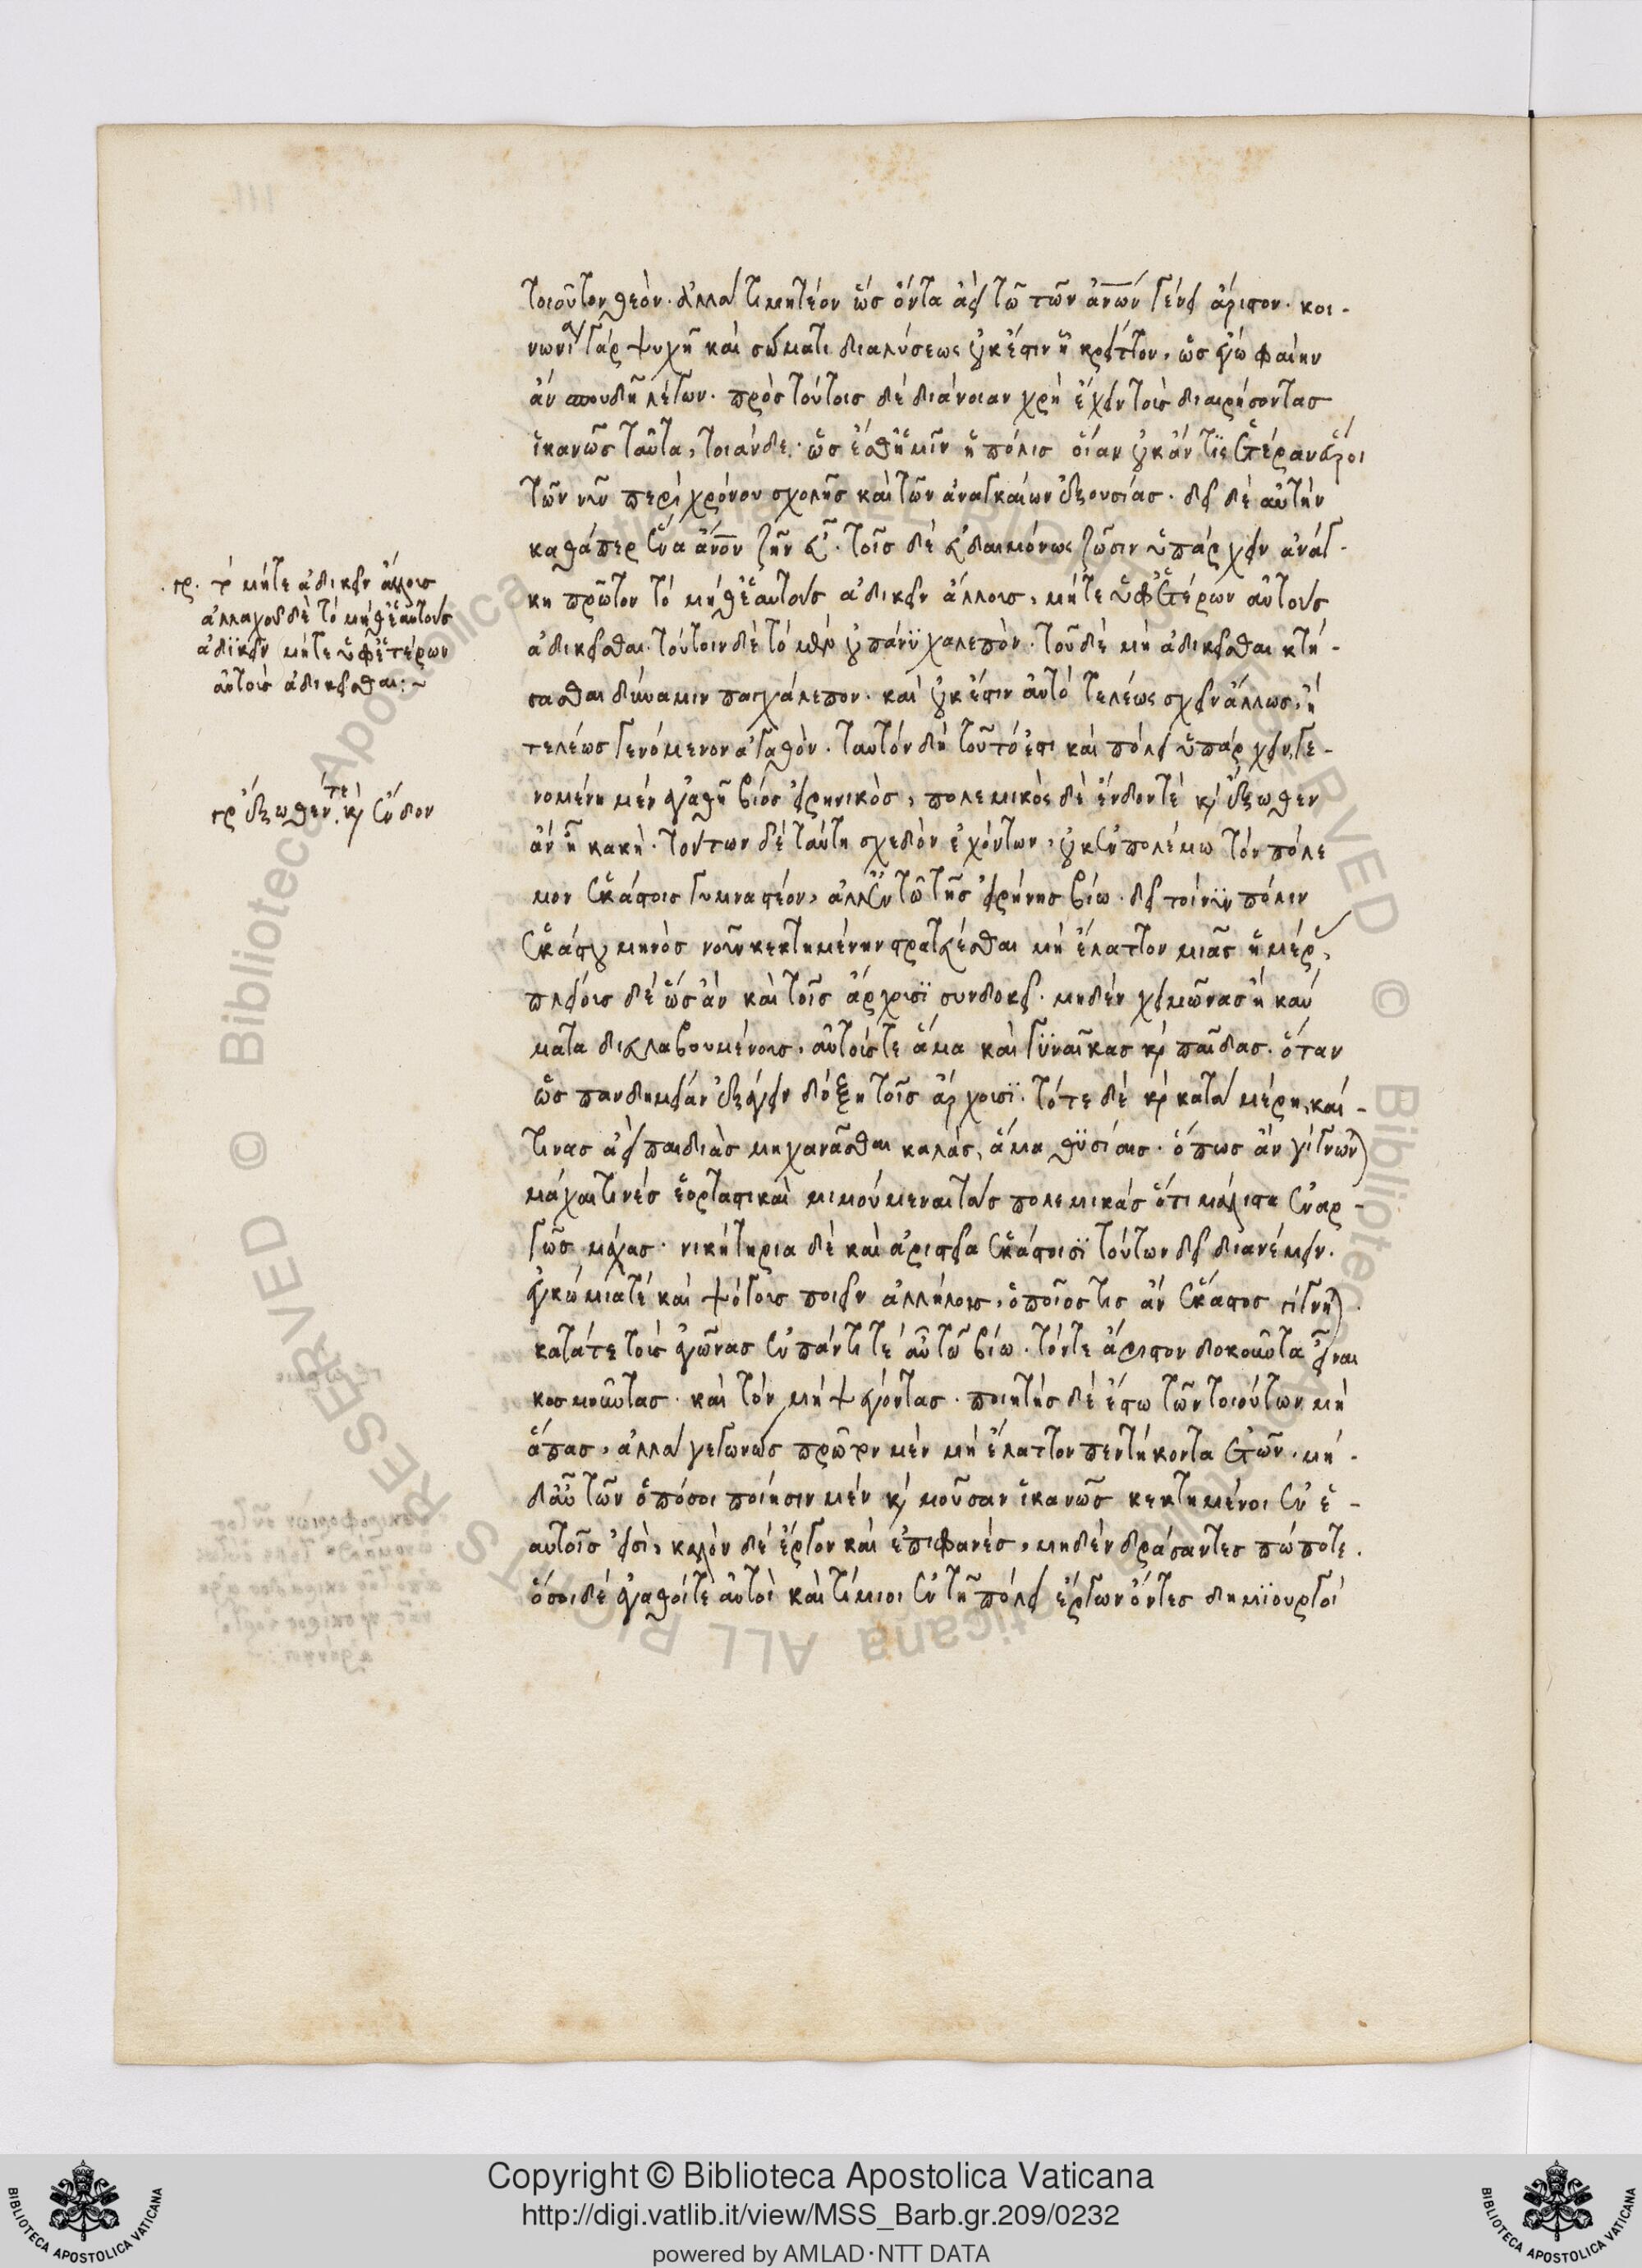 τοιοῦτον θεὸν· ἀλλὰ τιμητέον ὡς ὄντα ἀεὶ τῶ τῶν ἀνων γένει ἄριστον· κοι-
νωνία γὰρ ψυχῆ καὶ σώματι διαλύσεως οὐκ ἔστιν ἧ κρεῖττον, ὡς ἐγὼ φαίην
ἂν σπουδῆ λέγων· πρὸς τούτοις δὲ διάνοιαν χρὴ ἔχειν τοὺς διαιρήσοντας
ἱκανῶς ταῦτα, τοιάνδε· ὡς ἔσθ' ἡμῖν ἡ πόλις οἵαν οὐκ ἄν τις ἑτέραν εὕροι
τῶν νῦν περὶ χρόνου σχολῆς καὶ τῶν ἀναγκαίων ἐξουσίας· δεῖ δὲ αὐτὴν
καθάπερ ἕνα ἄνον ζῆν εὖ· τοῖς δὲ εὐδαιμόνως ζῶσιν ὑπάρχειν ἀνάγ-
κη πρῶτον τὸ μήθ' ἑαυτοὺς ἀδικεῖν ἄλλους, μήτε ὑφ' ἑτέρων αὐτοὺς
ἀδικεῖσθαι· τούτοιν δὲ τὸ μὲν οὐ πάνϋ χαλεπὸν· τοῦ δὲ μὴ ἀδικεῖσθαι κτή-
σασθαι δύναμιν παγχάλεπον· καὶ οὐκ ἔστιν αὐτὸ τελέως σχεῖν ἄλλως, ἢ
τελέως γενόμενον ἀγαθὸν· ταυτὸν δὴ τοῦτό ἐστι καὶ πόλει ὑπάρχειν, γε-
νομένη μὲν ἀγαθῆ βίος εἰρηνικὸς, πολεμικὸς δὲ ἔνδοντὲ κ ἔξωθεν
ἂν ἧ κακὴ· τούτων δὲ ταύτη σχεδὸν ἐχόντων, οὐκ ἐν πολέμω τὸν πόλε
μον ἑκάστοις γυμναστέον, ἀλλ' ἐν τῶ τῆς εἰρήνης βίω· δεῖ τοίνϋν πόλιν
ἑκάστου μηνὸς νοῦν κεκτημένην στρατεύεσθαι μὴ ἔλαττον μιᾶς ἡμέρ,
πλείους δὲ ὡς ἂν καὶ τοῖς ἄρχουσϊ συνδοκεῖ· μηδὲν χειμῶνας ἢ καύ
ματα διευλαβουμένους, αὐτούς τε ἅμα καὶ γϋναῖκας κ παῖδας· ὅταν
ὡς πανδημείαν ἐξάγειν δόξη τοῖς ἄρχουσϊ· τότε δὲ κ κατὰ μέρη, καί-
τινας ἀεὶ παιδιὰς μηχανᾶσθαι καλὰς, ἅμα θϋσίαις· ὅπως ἂν γίγνων)
μάχαι τινὲς ἑορταστικαὶ μιμούμεναι τὰς πολεμικὰς ὅτι μάλιστα ἐναρ-
γῶς μάχας· νικητήρια δὲ καὶ ἀριστεῖα ἑκάστοισϊ τούτων δεῖ διανέμειν·
ἐγκώμιάτε καὶ ψόγους ποιεῖν ἀλλήλοις, ὁποῖος τις ἂν ἕκαστος γίγνη)
κατάτε τοὺς ἀγῶνας ἐν παντί τε αὖ τῶ βίω· τόντε ἄριστον δοκοῦντα εἶναι
κοσμοῦντας· καὶ τὸν μὴ ψέγοντας· ποιητὴς δὲ ἔστω τῶν τοιούτων μὴ
ἅπας, ἀλλὰ γεγονὼς πρῶτον μὲν μὴ ἔλαττον πεντήκοντα ἐτῶν· μή-
δ' αὖ τῶν ὁπόσοι ποίησιν μὲν κ μοῦσαν ἱκανῶς κεκτημένοι ἐν ἑ-
αυτοῖς εἰσὶ, καλὸν δὲ ἔργον καὶ ἐπιφανὲς, μηδὲν δράσαντες πώποτε·
ὅσοι δὲ ἀγαθοίτε αὐτοὶ καὶ τίμιοι ἐν τῆ πόλει ἔργων ὄντες δημϊουργοὶ
γρ. τ μήτε ἀδικεῖν ἄλλους
ἀλλαχοῦ δὲ τὸ μήθ' ἑαυτοὺς
ἀδϊκεῖν μήτε ὑφ' ἑτέρων
αὐτοὺς ἀδικεῖσθαι:~
γρ ἔξωθέν τε κ ἔνδον
Copyright © Biblioteca Apostolica Vaticana
http://digi.vatlib.it/view/MSS_Barb.gr.209/0232
powered by AMLAD·NTT DATA
BIBLIOTECA APOSTOLICA VATICANA
BIBLIOTECA APOSTOLICA VATICANA